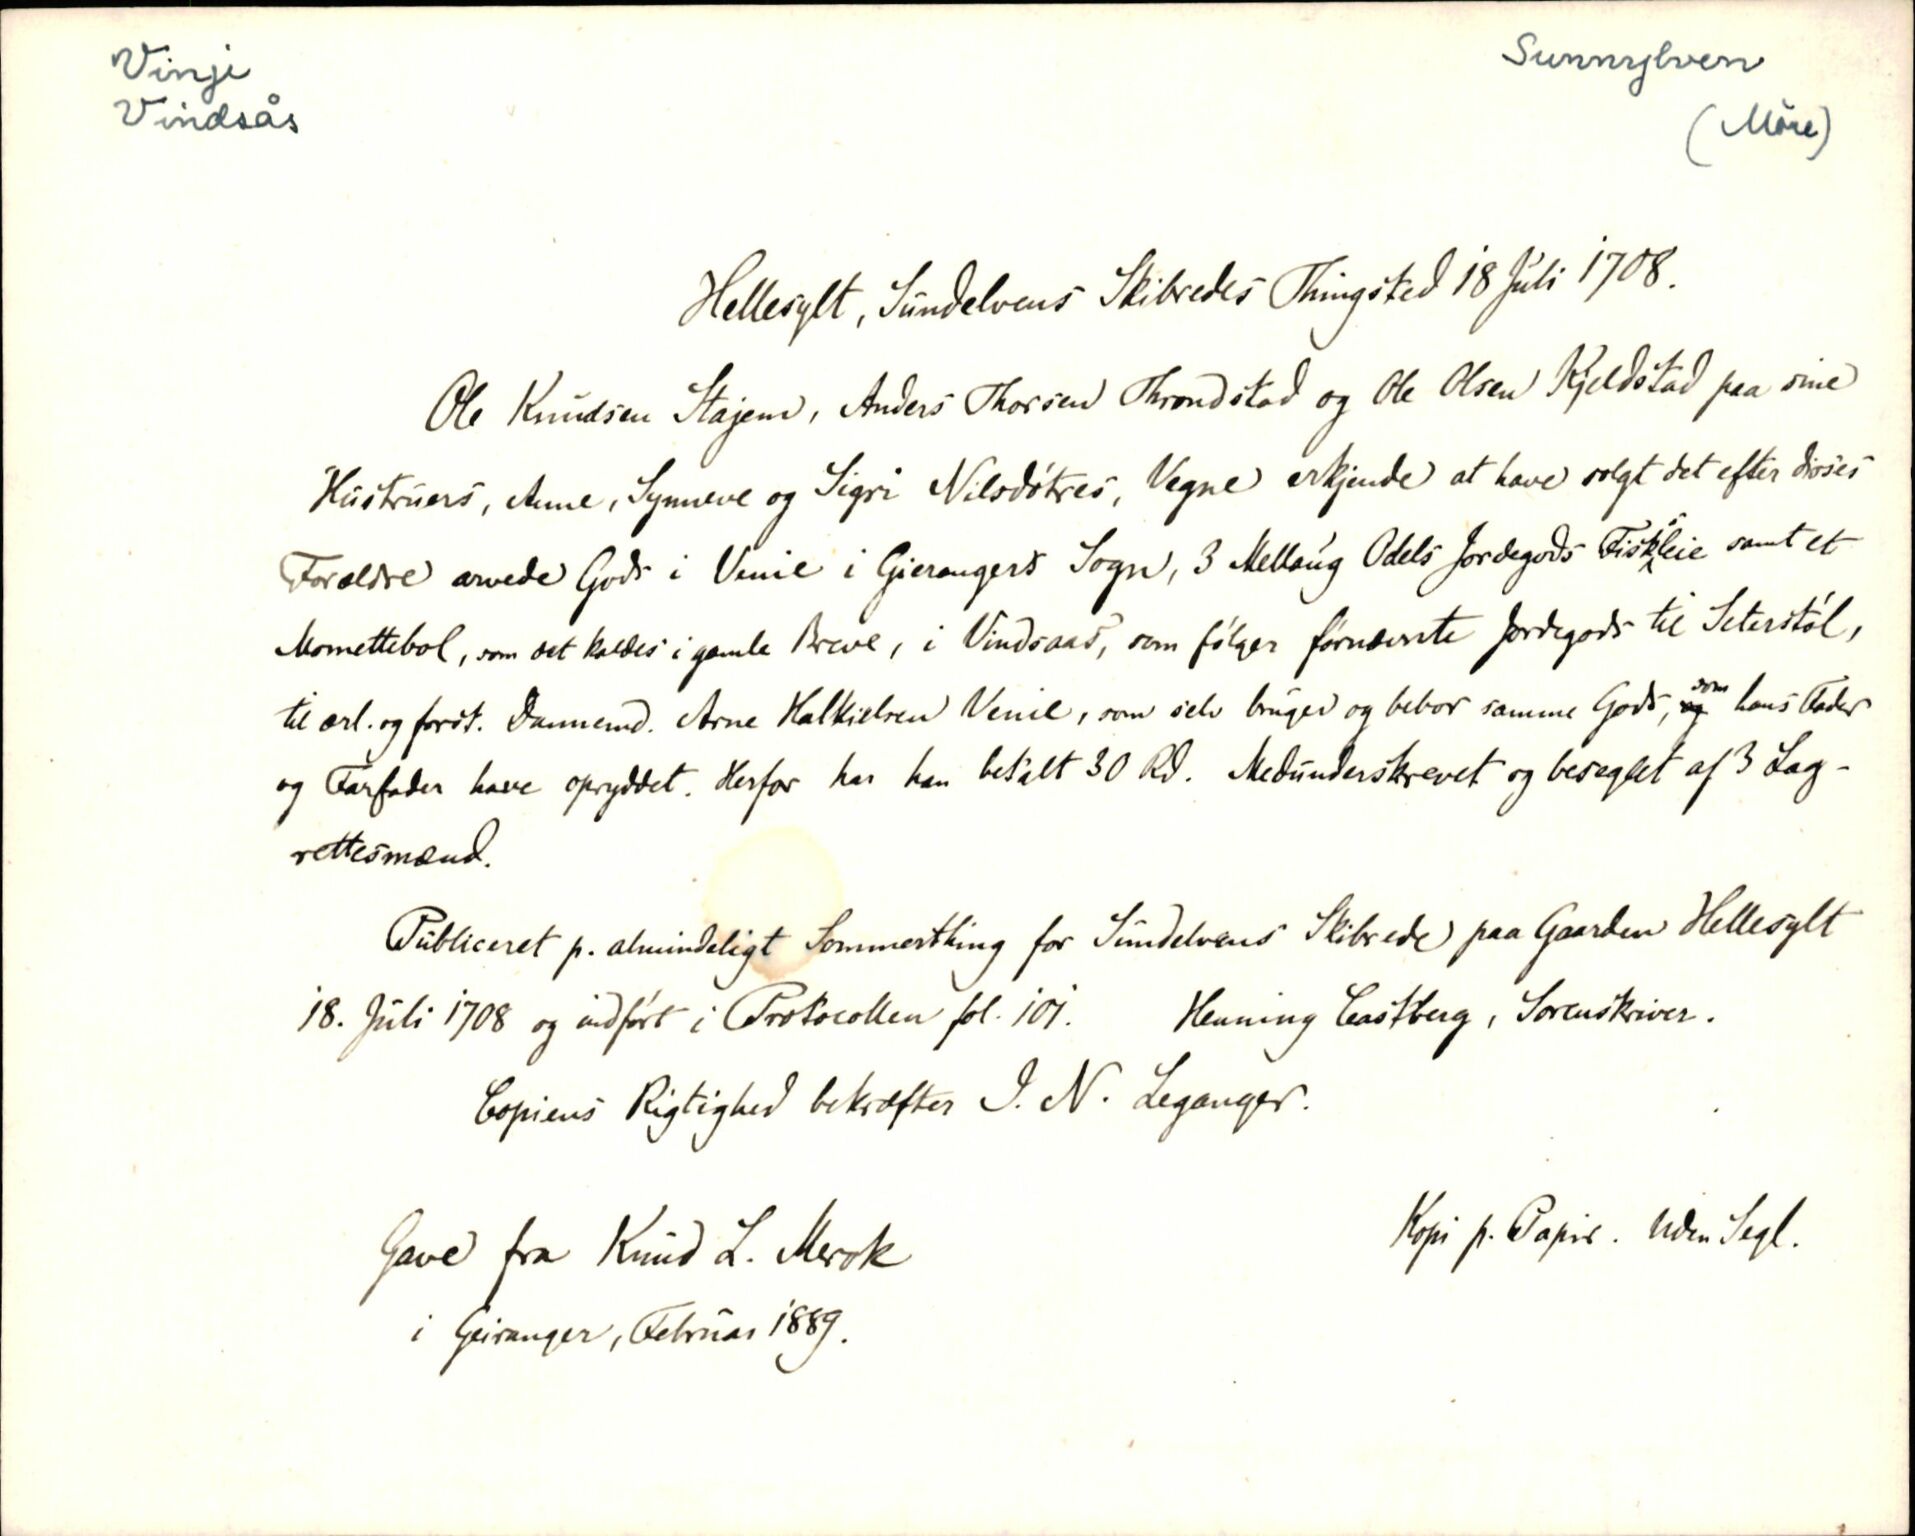 Vinje
Vindsås
Sunnylven
(Møre)
Hellesylt, Sundelvens Skibredes Thingsted 18 Juli 1708.
Ole Knudsen Stajem, Anders Thorsen Throndstad og Ole Olsen Kjeldstad paa sine
Hustruers, Anne, Synneve og Sigri Nilsdøtres, Vegne erkjende at have solgt det efter disses
Forældre arvede Gods i Venie i Gierangers Sogn, 3 Mellaug Odels Jordegods Fisksleie samt et
Momettebol, som det kaldes i gamle Breve, i Vindsaas, som følger førnævnte Jordegods til Seterstøl,
til ærl. og forst. Dannemd. Arne Halkielsen Venie, som selv bruger og bebor samme Gods, og som hans Fader
og Farfader have opryddet. Herfor har han betalt 30 Rd. Medunderskrevet og beseglet af 3 Lag-
rettesmænd.
Publiceret p. almindeligt Sommerthing for Sundelvens Skibrede paa Gaarden Hellesylt
18. Juli 1708 og indført i Protocollen fol. 101. Henning Castberg, Sorenskriver.
Copiens Rigtighed bekræfter I. N. Leganger.
Gave fra Knud L. Merok
i Geiranger, Februar 1889.
Kopi p. Papir. Uden Segl.